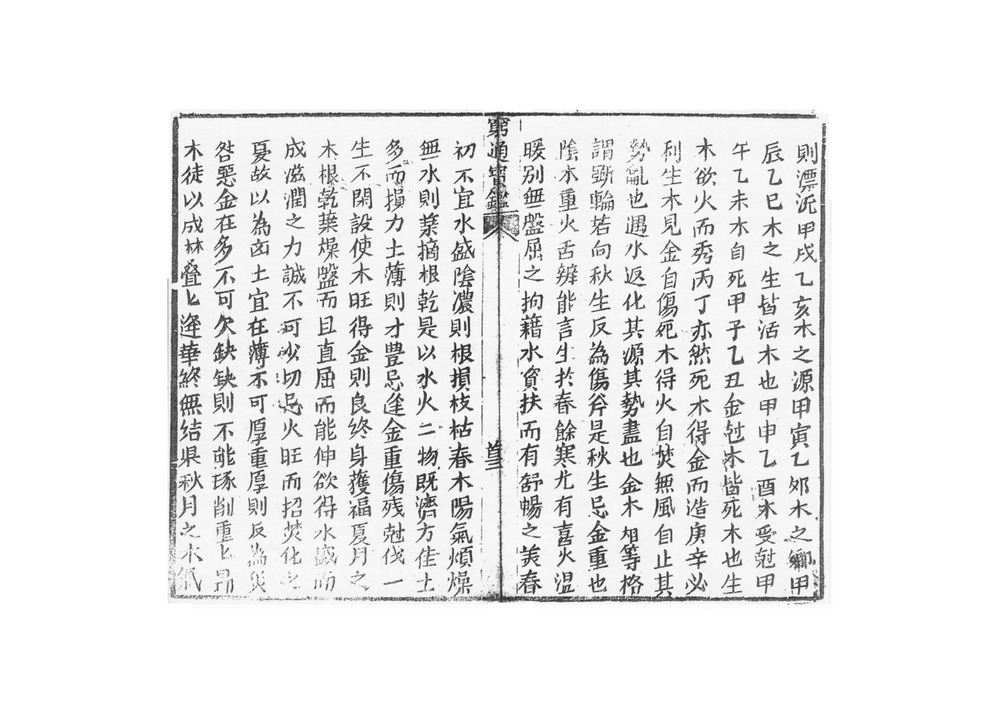 則漂泛甲戌乙亥木之源甲寅乙卯木之鄉甲
辰乙巳木之生皆活木也甲申乙酉木受尅甲
午乙未木自死甲子乙丑金尅木皆死木也生
木欲火而秀丙丁亦然死木得金而造庚辛必
利生木見金自傷死木得火自焚無風自止其
勢亂也遇水返化其源其勢盡也金木相等格
謂斵輪若向秋生反為傷斧是秋生忌金重也
陰木重火舌辨能言生於春餘寒尤有喜火温
暖别無盤屈之拘藉水資扶而有舒暢之美春
窮通寳鑑
初不宜水盛陰濃則根損枝枯春木陽氣煩燥
無水則葉摘根乾是以水火二物既濟方佳土
多而損力土薄則才豊忌逢金重傷残尅伐一
生不閑設使木旺得金則良終身獲福夏月之
木根乾葉燥盤而且直屈而能伸欲得水盛而
成滋潤之力誠不可少切忌火旺而招焚化之
憂故以為凶土宜在薄不可厚重厚則反為災
咎惡金在多不可欠缺缺則不能琢削重匕見
木徒以成林叠匕逢華終無結果秋月之木氣